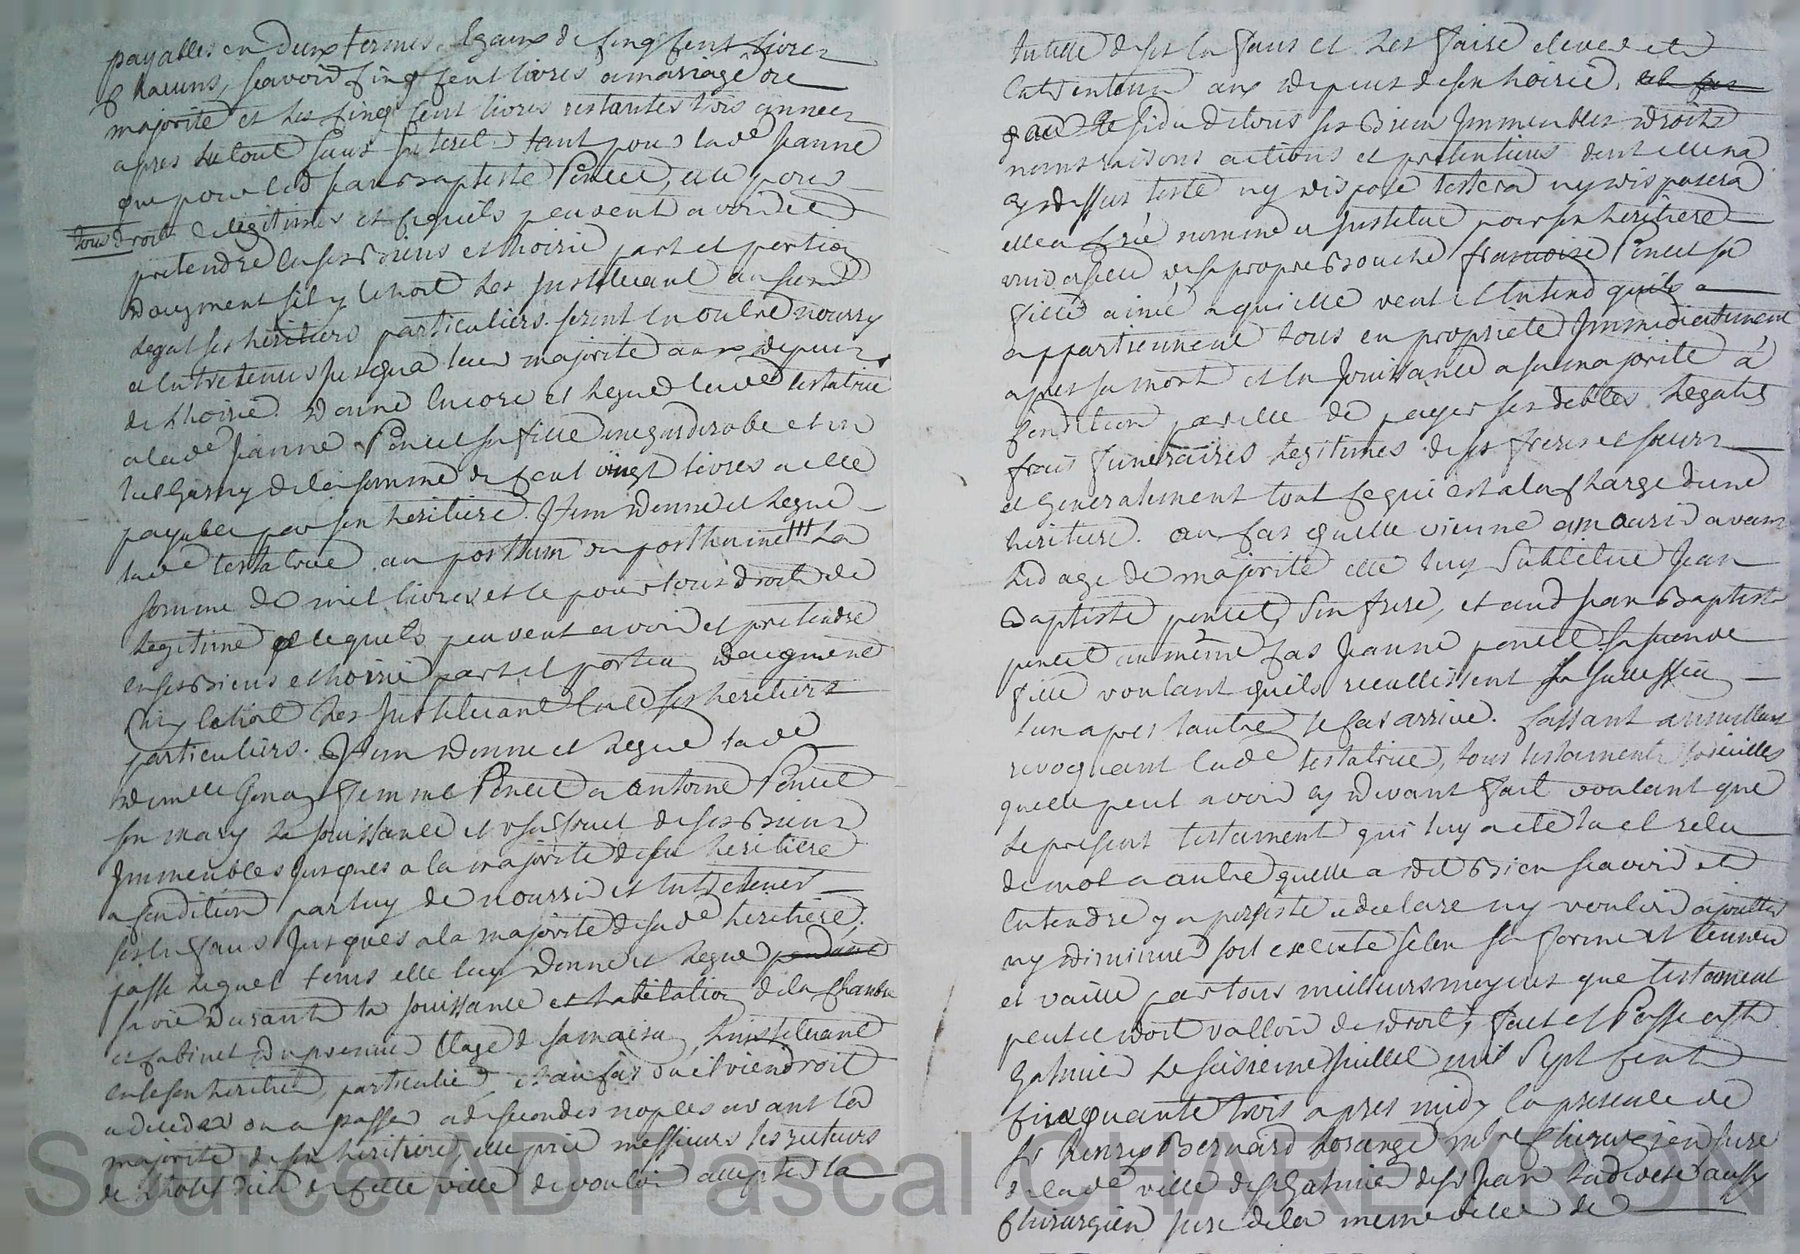 payables en deux termes egaux de cinq cent livres
chacuns, scavoir cinq cent livres a mariage ou
majorité et les cinq cent livres restantes trois années
apres le tout sans interet tant pour lad<sup>e</sup> Jeanne
que pour led Jean Baptiste Poncet, et ce pour
tous droits de legitimes et ce quils peuvent avoir et
pretendre en ses Biens et hoirie part et portion
daugment sil y echoit les Instituant au susd
legat ses heritiers particuliers. seront en outre nourry
et entretenus jusqua leur majorité aux depens
de lhoirie. Donne encore et legue lad<sup>e</sup> testatrice
a lad<sup>e</sup> Jeanne Poncet sa fille une garderobe et un
lict garny de la somme de cent vingt livres a elle
payable par son heritiere. Item donne et legue
lad<sup>e</sup> testatrice au posthum ou posthume la
somme de mil livres et ce pour tous droits de
legitime et ce quils peuvent avoir et pretendre
en ses Biens et hoirie part et portion daugment
sil y echoit les Instituant en ce ses heritiers
particuliers. Item donne et legue lad<sup>e</sup>
femme Poncet a antoine Poncet
son mary la jouissance et usufruit de ses Biens
Immeubles jusques a la majorité de sa heritiere
a condition par luy de nourrir et entretenir
ses enfans jusques a la majorité de sad<sup>e</sup> heritiere.
passé lequel tems elle luy donne et legue pendant
sa vie durant la jouissance et habitation de la chambre
et cabinet du premier Etage de sa maison, linstituant
en ce son heritier particulier, et au cas ou il viendroit
a deceder ou a passer a de secondes nopces avant la
majorité de son heritiere, elle prie messieurs les recteurs
de Lhotel dieu de cette ville de vouloir accepter la
tutelle de ses enfans et les faire elever et
Entretenir aux depens de son hoirie.
au Residu de tous ses Biens Immeubles droits
noms raisons actions et pretentions dont elle na
cy dessus testé ny disposé testera ny disposera
elle a creé nommé et Institué pour son heritiere
de sa propre Bouche francoise Poncet sa
fille ainée a qui elle veut et Entend quils
appartiennent tous en propriété Immediatement
apres sa mort et en jouissance a sa majorité à
condition par elle de payer ses debtes legats
frais funeraires legitimes de ses freres et soeurs
et generalement tout ce qui est a la charge dune
heritiere. au cas quelle vienne a mourir avant
led age de majorité elle luy substitue Jean
Baptiste poncet, son frere, et aud Jean Baptiste
poncet au même cas Jeanne poncet sa seconde
fille voulant quils recueillissent sa succession
lun apres lautre le cas arrivé. Cassant annullant
revoquant lad<sup>e</sup> testatrice, tous testaments
quelle peut avoir cy devant fait voulant que
le present testament qui luy a eté lu et relu
de mot a autre quelle a dit Bien scavoir et
Entendre y a persisté a declaré ny vouloir ajoutter
ny diminuer soit executé selon sa forme et teneur
et vaille par tous meilleurs moyens que testament
peut et doit valloir de droit, fait et Passé a st
Galmier le seisieme juillet mil sept cent
cinquante trois apres midy en presence de
s<sup>r</sup> henry Bernard m<sup>re</sup> chirurgien juré
de lad<sup>e</sup> ville de st Galmier de s<sup>r</sup> Jean aussy
chirurgien juré de la meme ville de
Source AD Pascal CHAREYRON